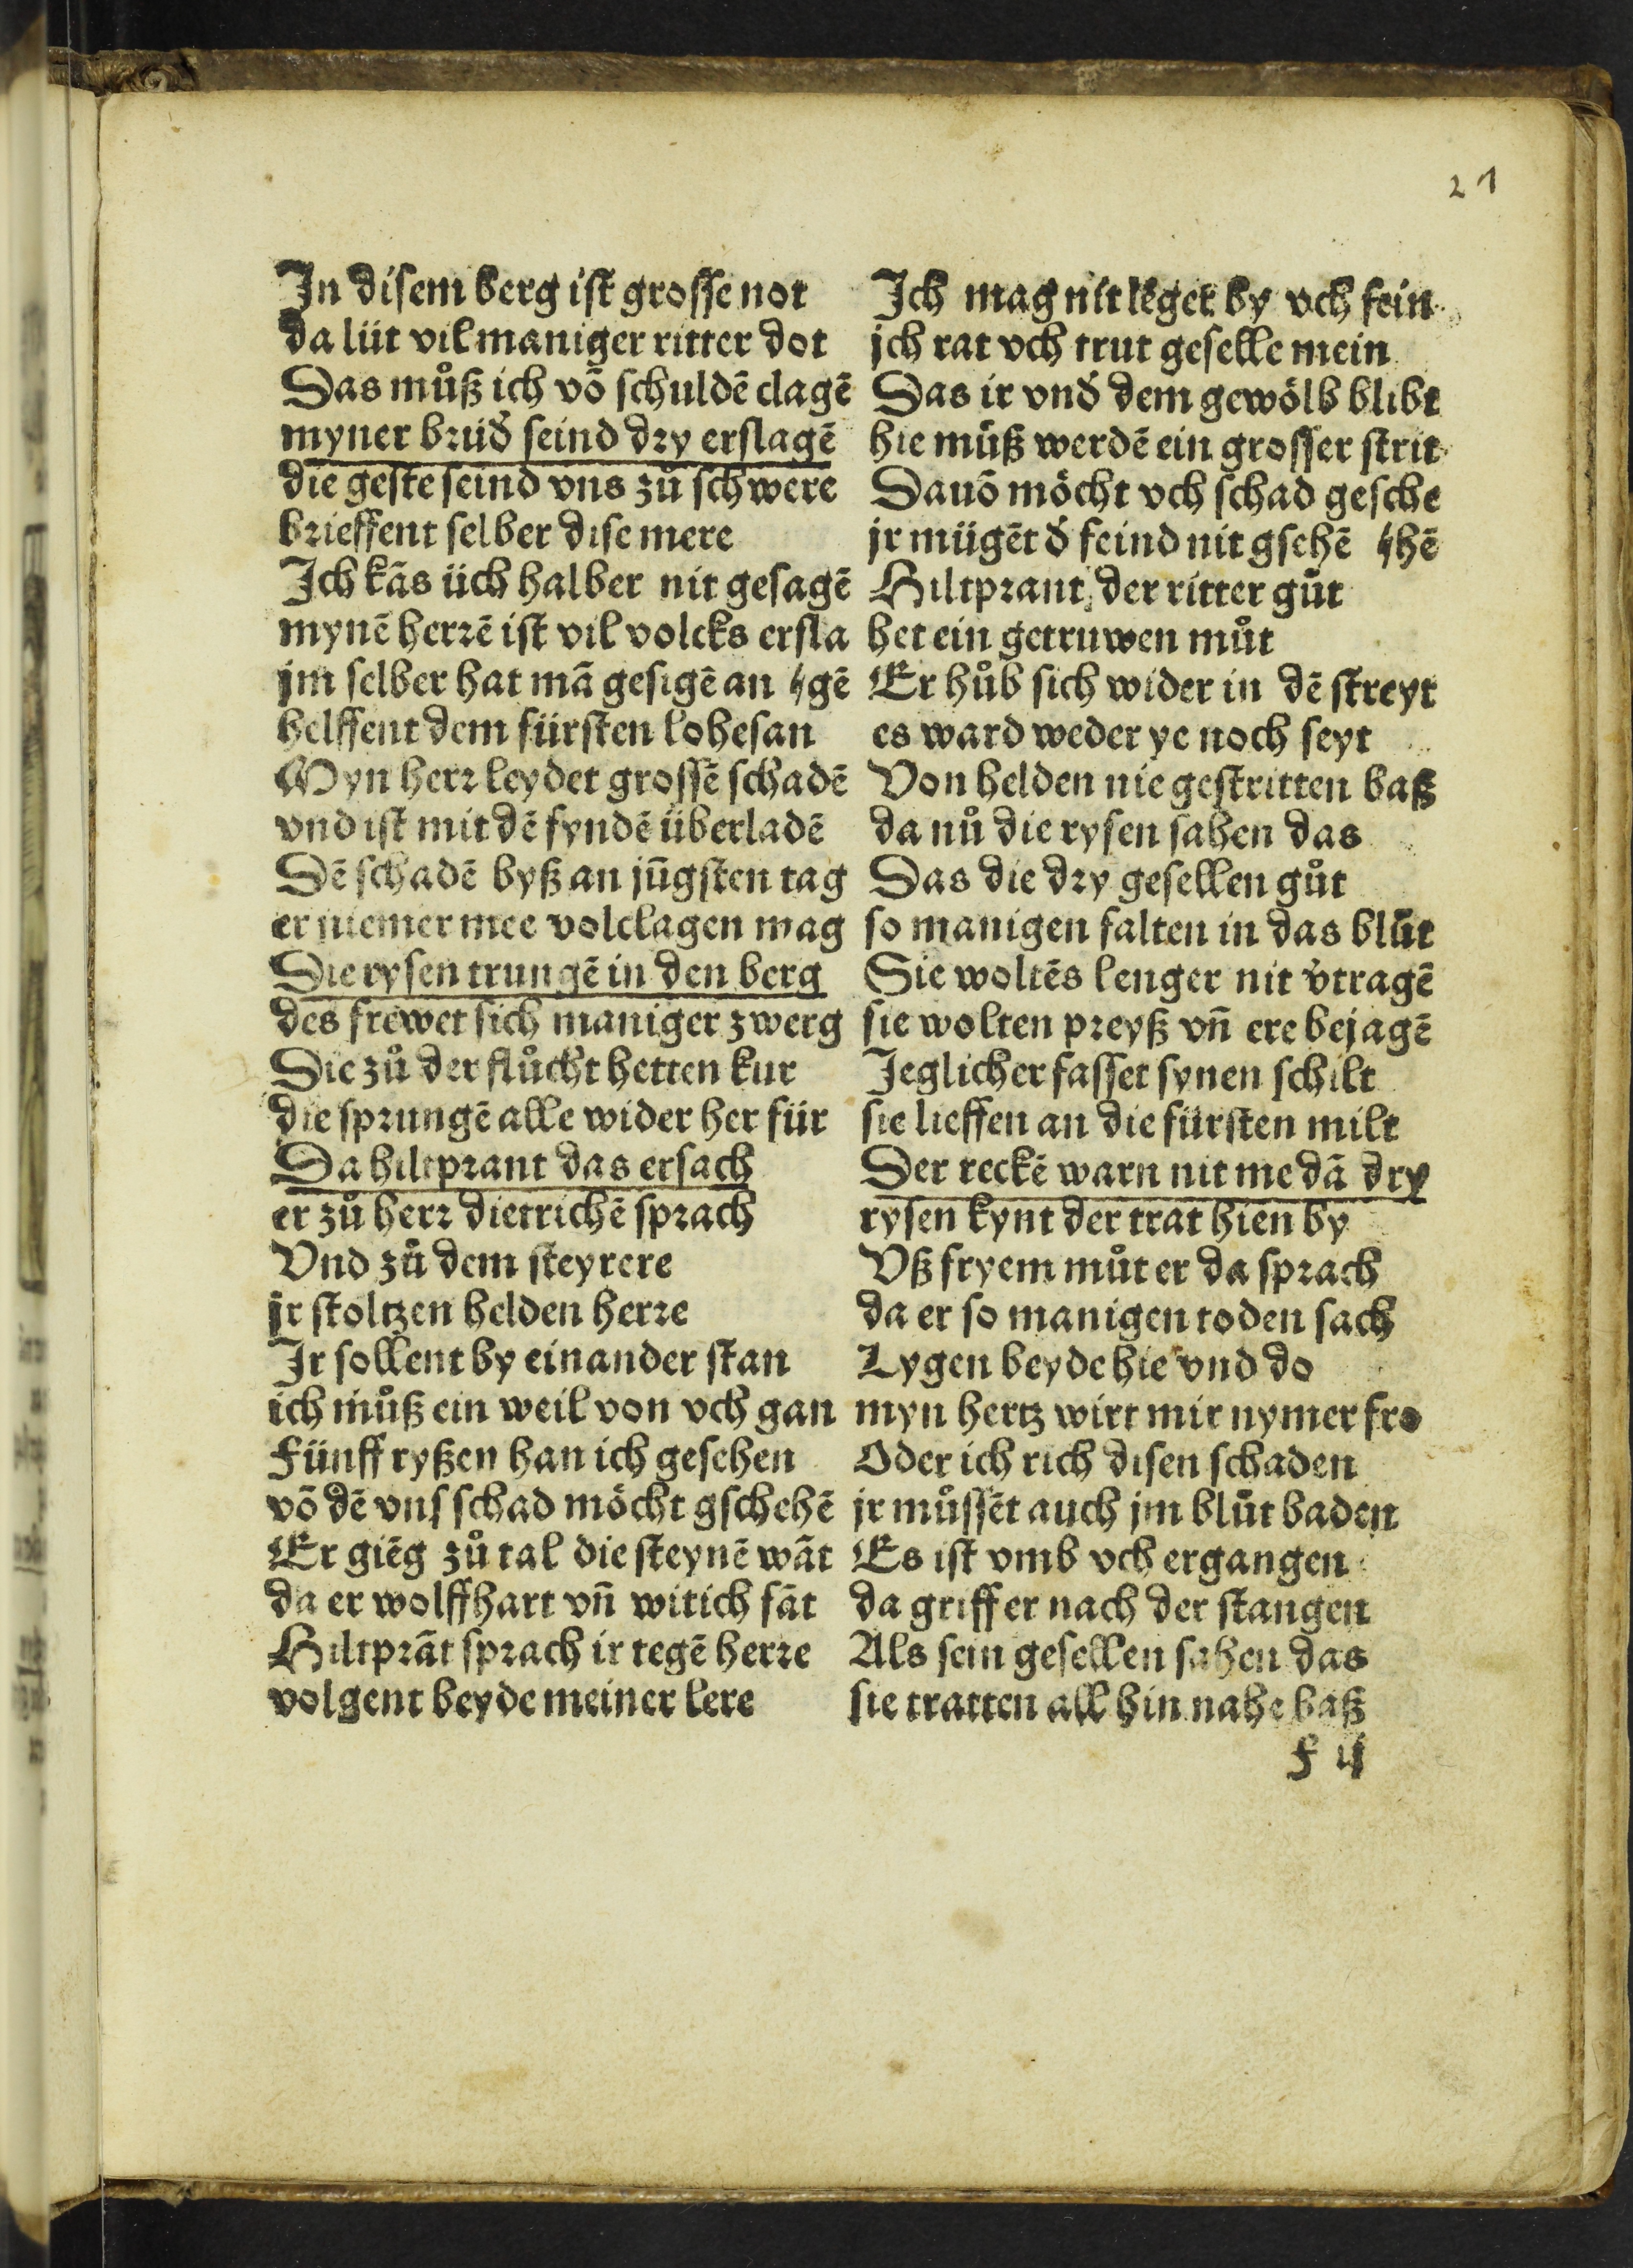 21
In disem berg ist grosse not
da liit vil maniger ritter dot
Das můß ich võ schuldẽ clagẽ
myner brüđ seind dry erslagẽ
die geste seind vns zů schwere
brieffent selber dise mere
Ich kãs üch halber nit gesagẽ
mynẽ herrẽ ist vil volcks ersla
jm selber hat mã gesigẽ an gẽ
helffent dem fürsten lobesan
Myn herr leydet grossẽ schadẽ
vnd ist mit dẽ fyndẽ überladẽ
Dẽ schadẽ byß an jũgsten tag
er niemer mee volclagen mag
Die rysen trungẽ in den berg
des frewet sich maniger zwerg
Die zů der flůcht hetten kur
die sprungẽ alle wider her für
Da hiltprant das ersach
er zů herr dietrichẽ sprach
Vnd zů dem steyrere
jr stoltzen helden herre
Ir sollent by einander stan
ich můß ein weil von vch gan
Fünff ryßen han ich gesehen
võ dẽ vns schad möcht gschehẽ
Er giẽg zů tal die steynẽ wãt
da er wolffhart vñ witich fãt
Hiltprãt sprach ir tegẽ herre
volgent beyde meiner lere
Ich mag nit lẽger by vch sein
jch rat vch trut geselle mein
Das ir vnđ dem gewölb blibt
hie můß werdẽ ein grosser strit
Dauõ möcht vch schad gesche
jr mügẽt đ feind nit gsehẽ hẽ
Hiltprant der ritter gůt
het ein getruwen můt
Er hůb sich wider in dẽ streyt
es ward weder ye noch seyt
Von helden nie gestritten baß
da nů die rysen sahen das
Das die dry gesellen gůt
so manigen falten in das blůt
Sie woltẽs lenger nit v̓tragẽ
sie wolten preyß vñ ere bejagẽ
Jeglicher fasset synen schilt
sie lieffen an die fürsten milt
Der reckẽ warn nit me dã dry
rysen kynt der trat hien by
Vß fryem můt er da sprach
da er so manigen toden sach
Lygen beyde hie vnd do
myn hertz wirt mir nymer fro
Oder ich rich disen schaden
jr můssẽt auch jm blůt baden
Es ist vmb vch ergangen
da griff er nach der stangen
Als sein gesellen sahen das
sie tratten all hin nahe baß
F ij